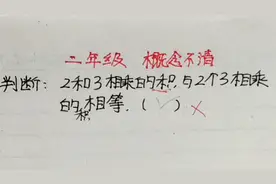 二年级 概念不清
判断: 2和3相乘的积,与2个3相乘
的积相等. (✓) ×